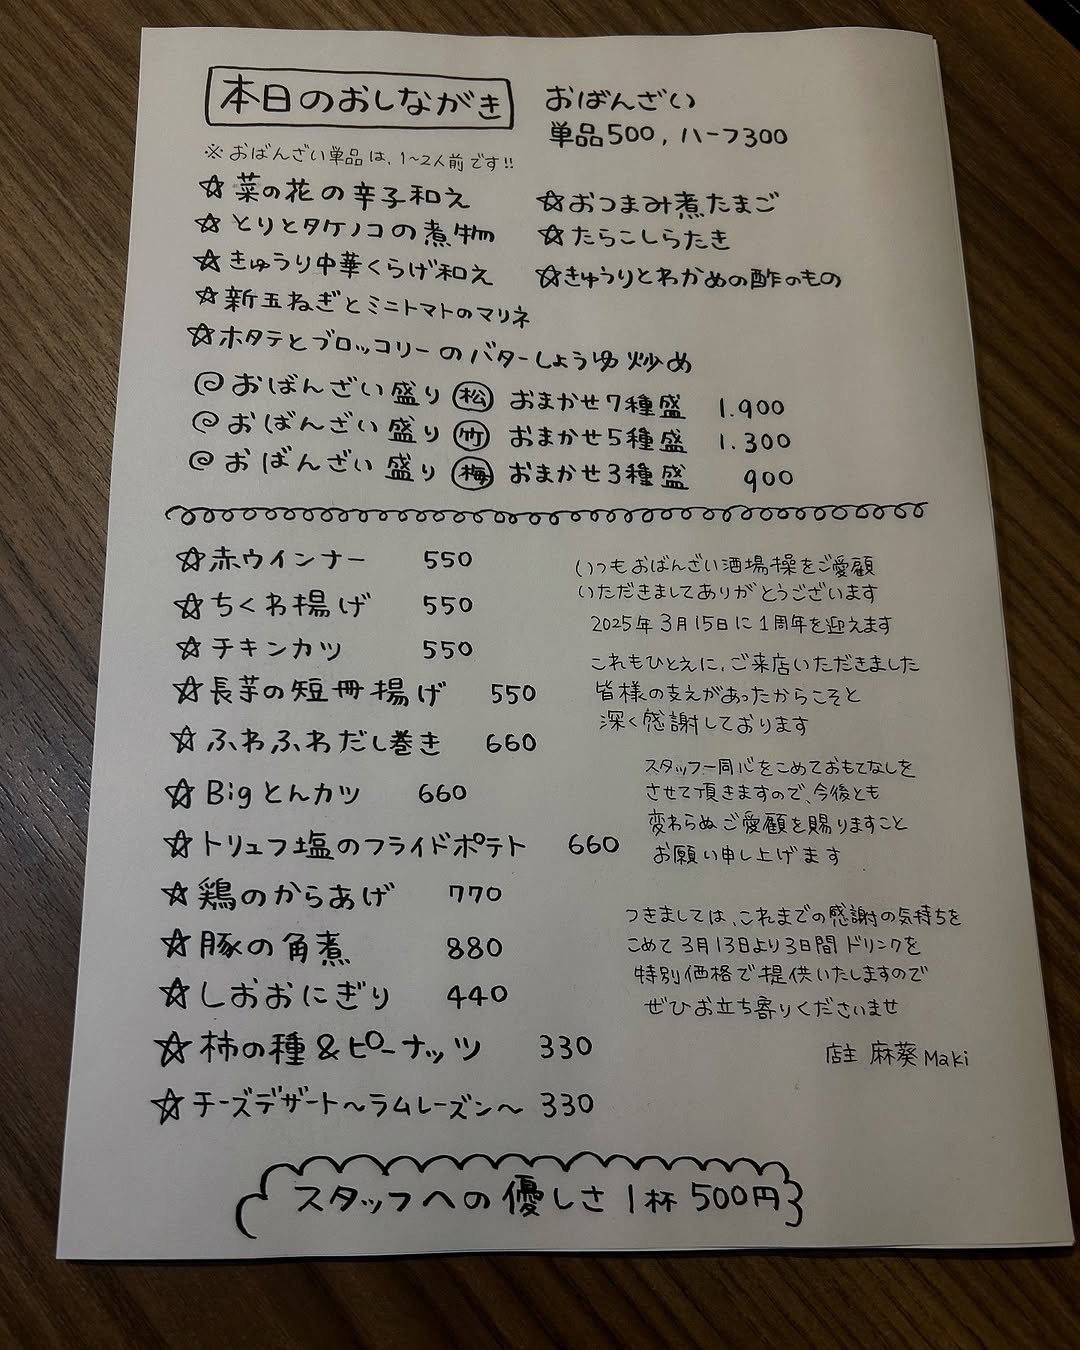 本日のおしながき
おばんざい
単品500, ハーフ300
※おばんざい単品は、1~2人前です!!
☆菜の花の辛子和え
☆おつまみ煮たまご
☆とりとタケノコの煮物
☆たらこしらたき
☆きゅうり中華くらげ和え
☆きゅうりとわかめの酢のもの
☆新玉ねぎとミニトマトのマリネ
☆ホタテとブロッコリーのバターしょうゆ炒め
おばんざい盛り 松 おまかせ7種盛 1.900
おばんざい盛り 竹 おまかせ5種盛 1.300
おばんざい盛り 梅 おまかせ3種盛 900
☆赤ウインナー 550
☆ちくわ揚げ 550
☆チキンカツ 550
☆長芋の短冊揚げ 550
☆ふわふわだし巻き 660
☆Bigとんカツ 660
☆トリュフ塩のフライドポテト 660
☆鶏のからあげ 770
☆豚の角煮 880
☆しおおにぎり 440
☆柿の種&ピーナッツ 330
☆チーズデザート~ラムレーズン~ 330
いつもおばんざい酒場操をご愛顧
いただきましてありがとうございます
2025年3月15日に1周年を迎えます
これもひとえに、ご来店いただきました
皆様の支えがあったからこそと
深く感謝しております
スタッフ一同心をこめておもてなしを
させて頂きますので、今後とも
変わらぬご愛顧を賜りますこと
お願い申し上げます
つきましては、これまでの感謝の気持ちを
こめて3月13日より3日間ドリンクを
特別価格で提供いたしますので
ぜひお立ち寄りくださいませ
店主 麻葵Maki
スタッフへの優しさ1杯500円